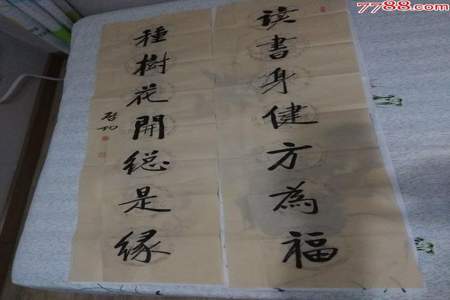 读书身健方為福
種樹花開總是緣
启功
7788.com